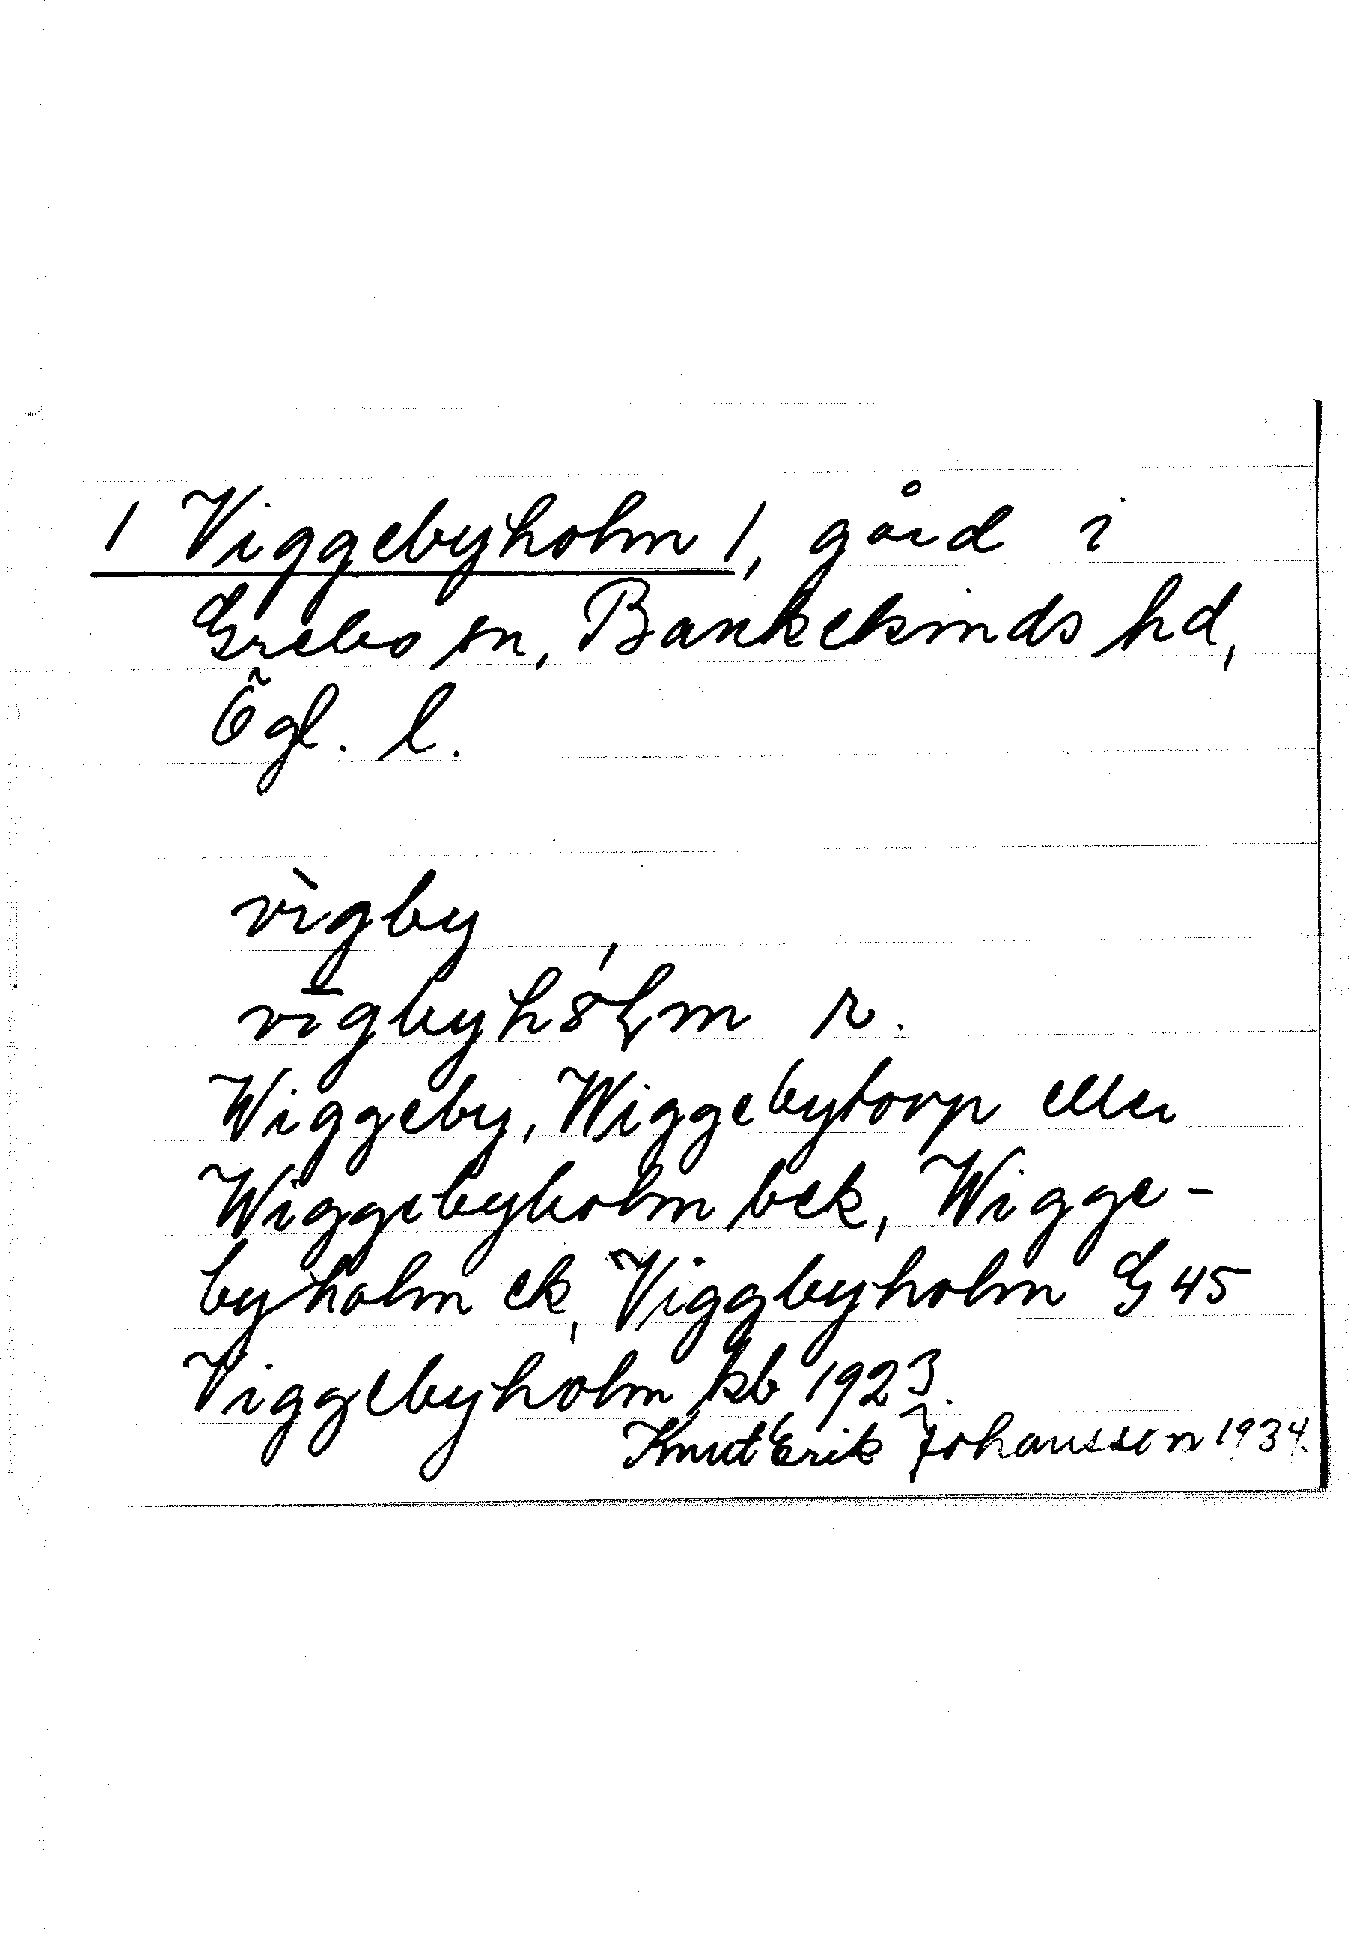 1 Viggebyholm 1, gård i
Grebo sn, Bankekinds hd,
Ögl. l.
vìgby
vīgbyhólm r.
Wiggeby, Wiggebytorp eller
Wiggebyholm bek, Wigge-
byholm ek, Viggbyholm G 45
Viggebyholm kb 1923.
Knut Erik Johansson 1934.